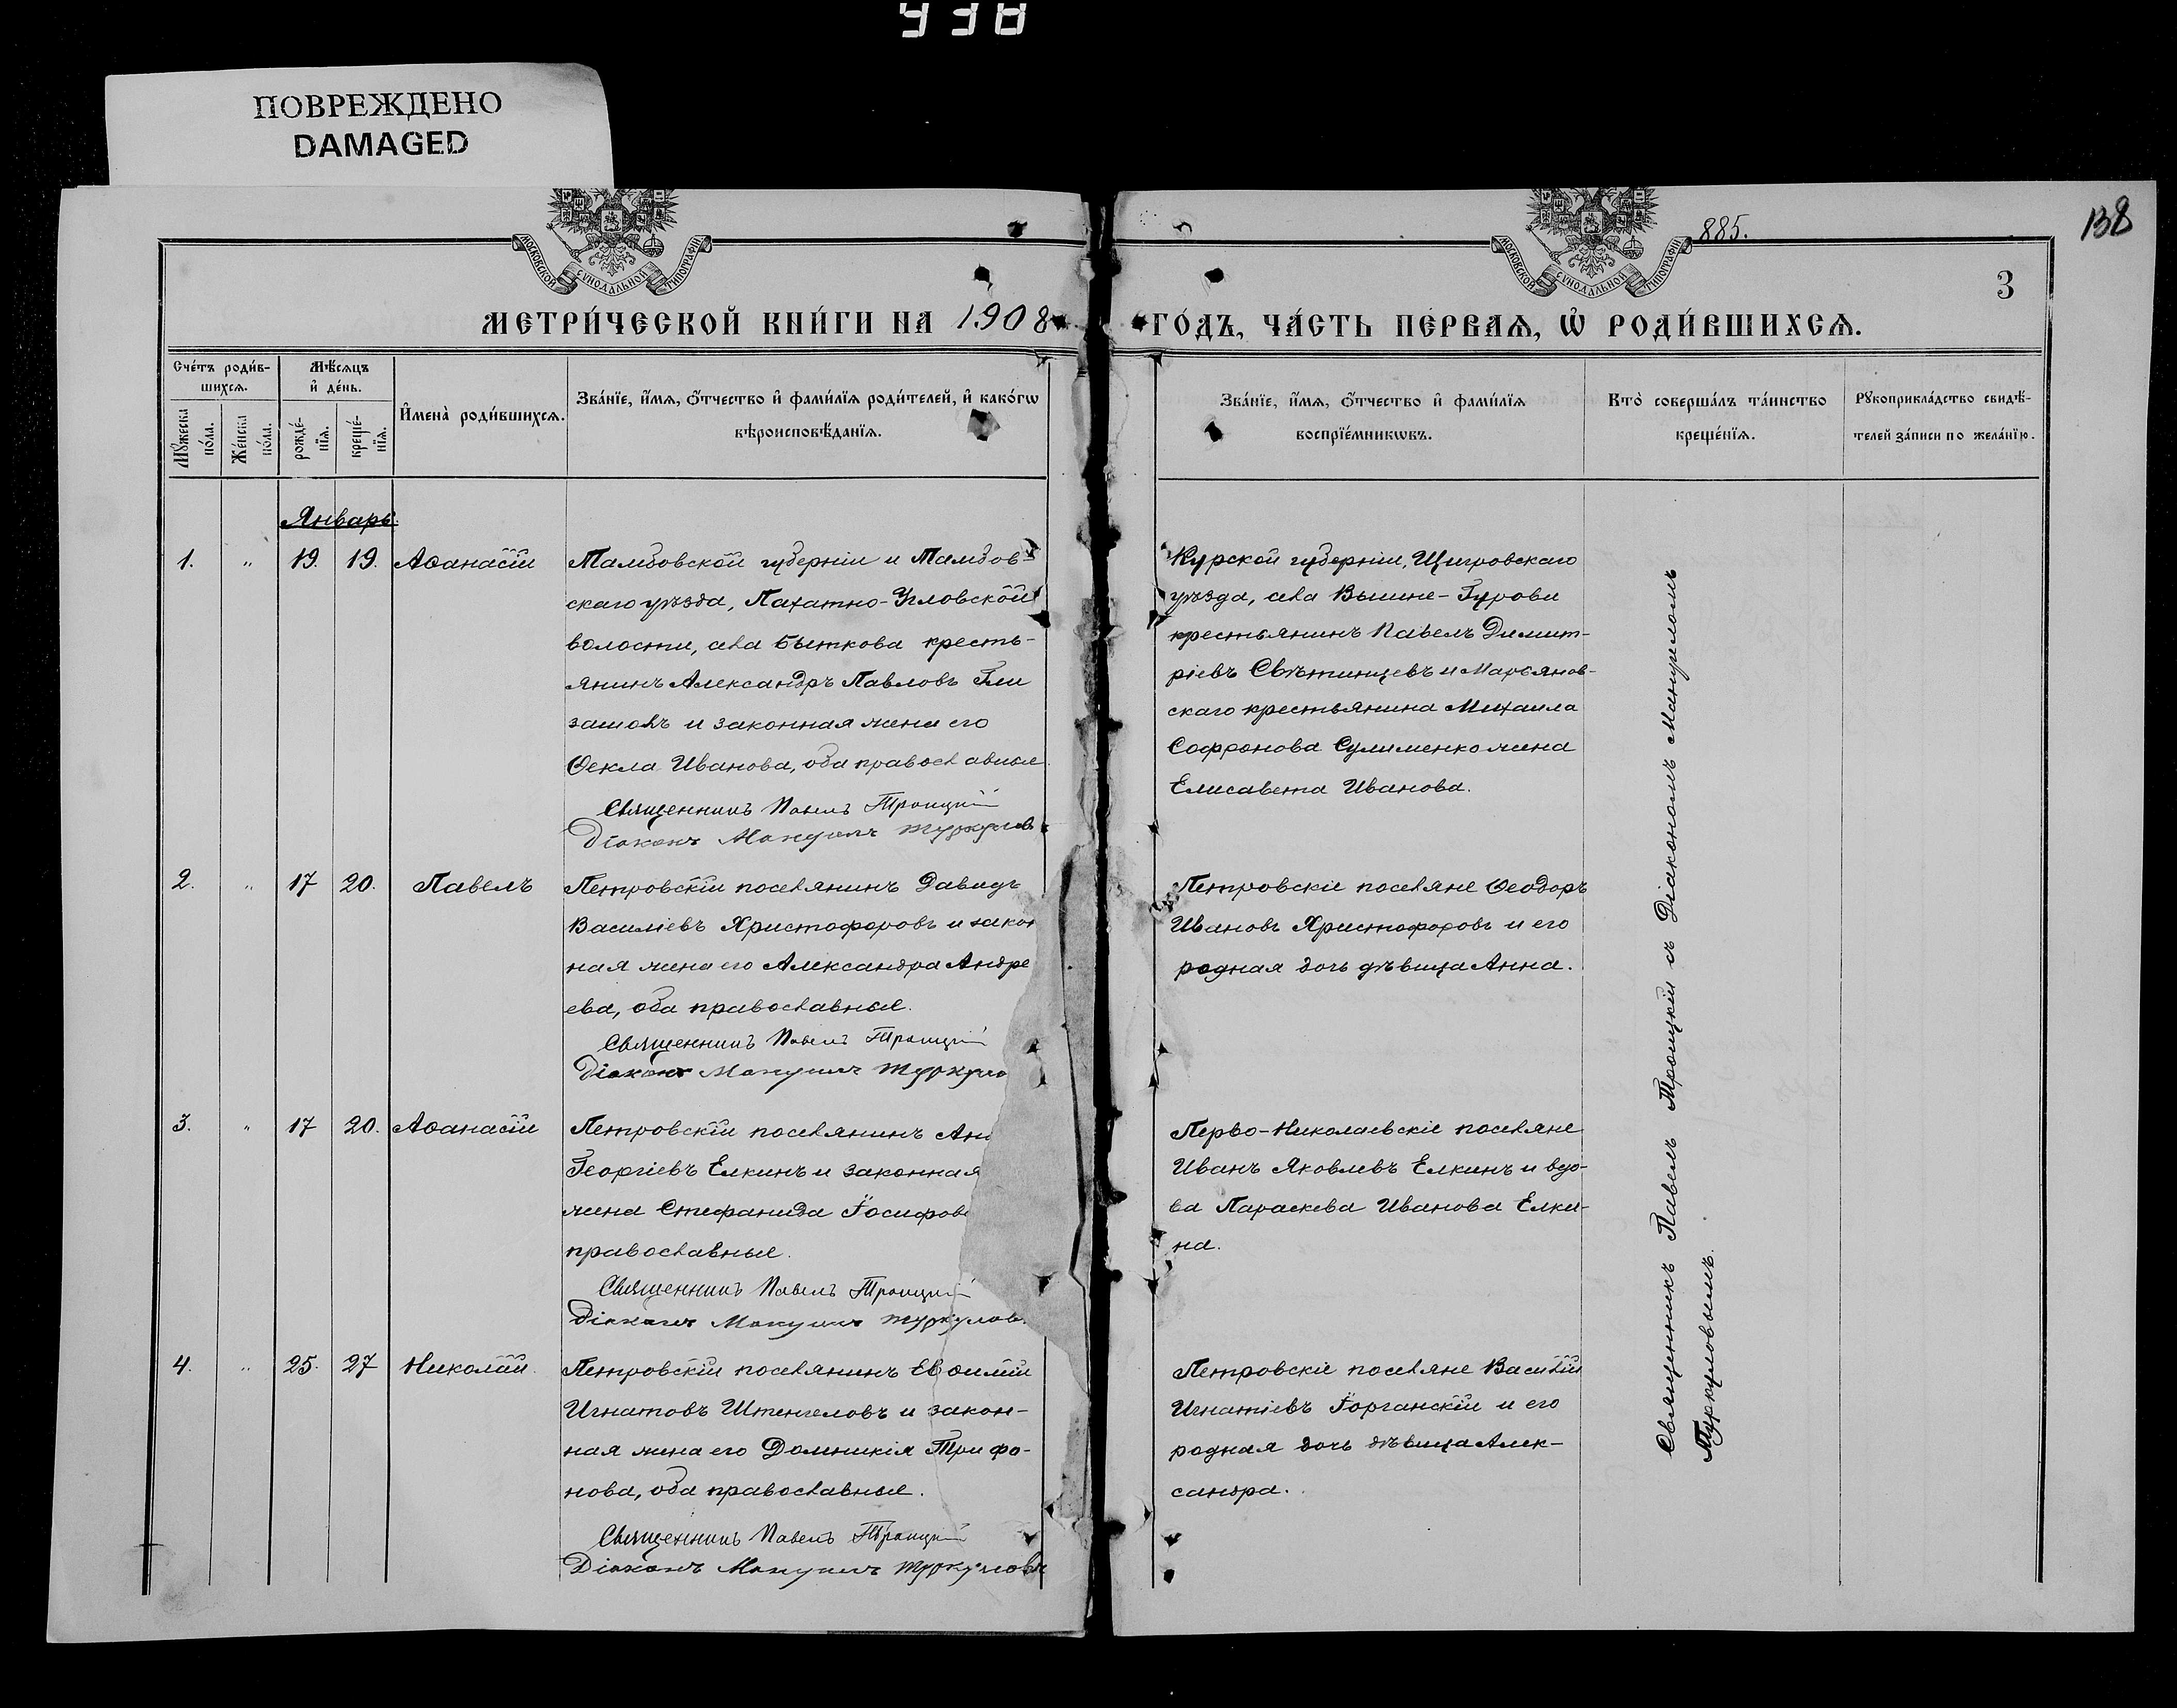 938
ПОВРЕЖДЕНО
DAMAGED
МОСКОВСКОЙ СѴНОДАЛЬНОЙ ТИПОГРАФІИ
МОСКОВСКОЙ СѴНОДАЛЬНОЙ ТИПОГРАФІИ
885.
138
3
МЕТРИ́ЧЕСКОЙ КНИ́ГИ НА 1908
ГО́ДЪ, ЧА́СТЬ ПЕ́РВАѦ, Ѡ҆ РОДИ́ВШИХСѦ.
Сче́тъ роди́в-
шихсѧ.
Мꙋжеска по́ла.
Же́нска по́ла.
Мѣ́сѧцъ
и҆ де́нь.
рожде́-
нїѧ.
креще́-
нїѧ.
И҆мена̀ роди́вшихсѧ.
Зва́нїе, и҆́мѧ, ѻ҆́тчество и҆ фами́лїѧ роди́телей, и҆ како́гѡ
вѣроисповѣ́данїѧ.
Зва́нїе, и҆́мѧ, ѻ҆́тчество и҆ фами́лїѧ
воспрїе́мникѡвъ.
Кто̀ соверша́лъ та́инство
креще́нїѧ.
Рꙋкоприкла́дство свидѣ́-
телей за́писи по жела́нїю.
Январь.
1. " 19. 19. Аѳанасій
Тамбовской губерніи и Тамбов-
скаго уѣзда, Пахатно-Угловской
волости, села Быткова кресть-
янинъ Александръ Павловъ
и законная жена его
Ѳекла Иванова, оба православные.
Священникъ Павелъ Троицкій
Діаконъ Мануилъ Туркуловъ
Курской губерніи, Щигровскаго
уѣзда, села Вышне-Гурова
крестьянинъ Павелъ Димит-
ріевъ Свѣтинцевъ и Марьянов-
скаго крестьянина Михаила
Софронова Сулименко жена
Елисавета Иванова.
2. " 17 20. Павелъ
Петровскій поселянинъ Давидъ
Василіевъ Христофоровъ и закон
ная жена его Александра Андре
ева, оба православные.
Священникъ Павелъ Троицкій
Діаконъ Мануилъ Туркуло
Петровскіе поселяне Ѳеодоръ
Ивановъ Христофоровъ и его
родная дочь дѣвица Анна.
3. " 17 20. Аѳанасій
Петровскій поселянинъ Ан
Георгіевъ Елкинъ и законная
жена Стефанида Іосифов
православные.
Священникъ Павелъ Троицкій
Діаконъ Мануилъ Туркулов
Перво-Николаевскіе поселяне
Иванъ Яковлевъ Елкинъ и вдо-
ва Параскева Иванова Елки-
на.
4. " 25. 27 Николай
Петровскій поселянинъ Евѳимій
Игнатовъ Штенгеловъ и закон-
ная жена его Домникія Трифо-
нова, оба православные.
Священникъ Павелъ Троицкій
Діаконъ Мануилъ Туркуловъ
Петровскіе поселяне Василій
Игнатіевъ Іорганскій и его
родная дочь дѣвица Алек-
сандра.
Священникъ Павелъ Троицкій съ Діакономъ Мануиломъ
Туркуловымъ.